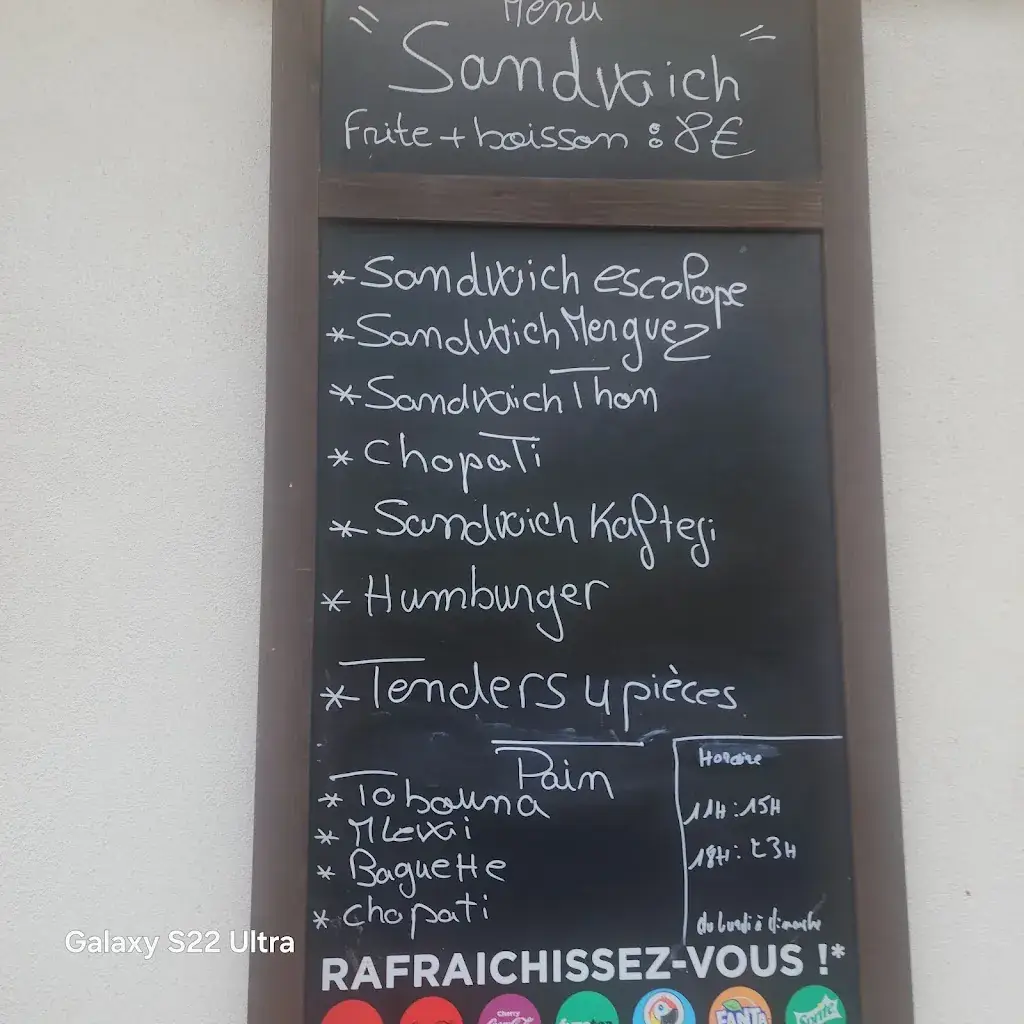 Menu
Sandwich
Frite + boisson : 8€
* Sandwich escalope
* Sandwich Merguez
* Sandwich Thon
* Chapati
* Sandwich Kaftegi
* Humburger
* Tenders 4 pièces
Pain
* Tabouna
* Mlewi
* Baguette
* chapati
Horaire
11H : 15H
18H : 23H
du lundi à dimanche
Galaxy S22 Ultra
RAFRAICHISSEZ-VOUS !*
Cherry
Coca-Cola
FANTA
Sprite